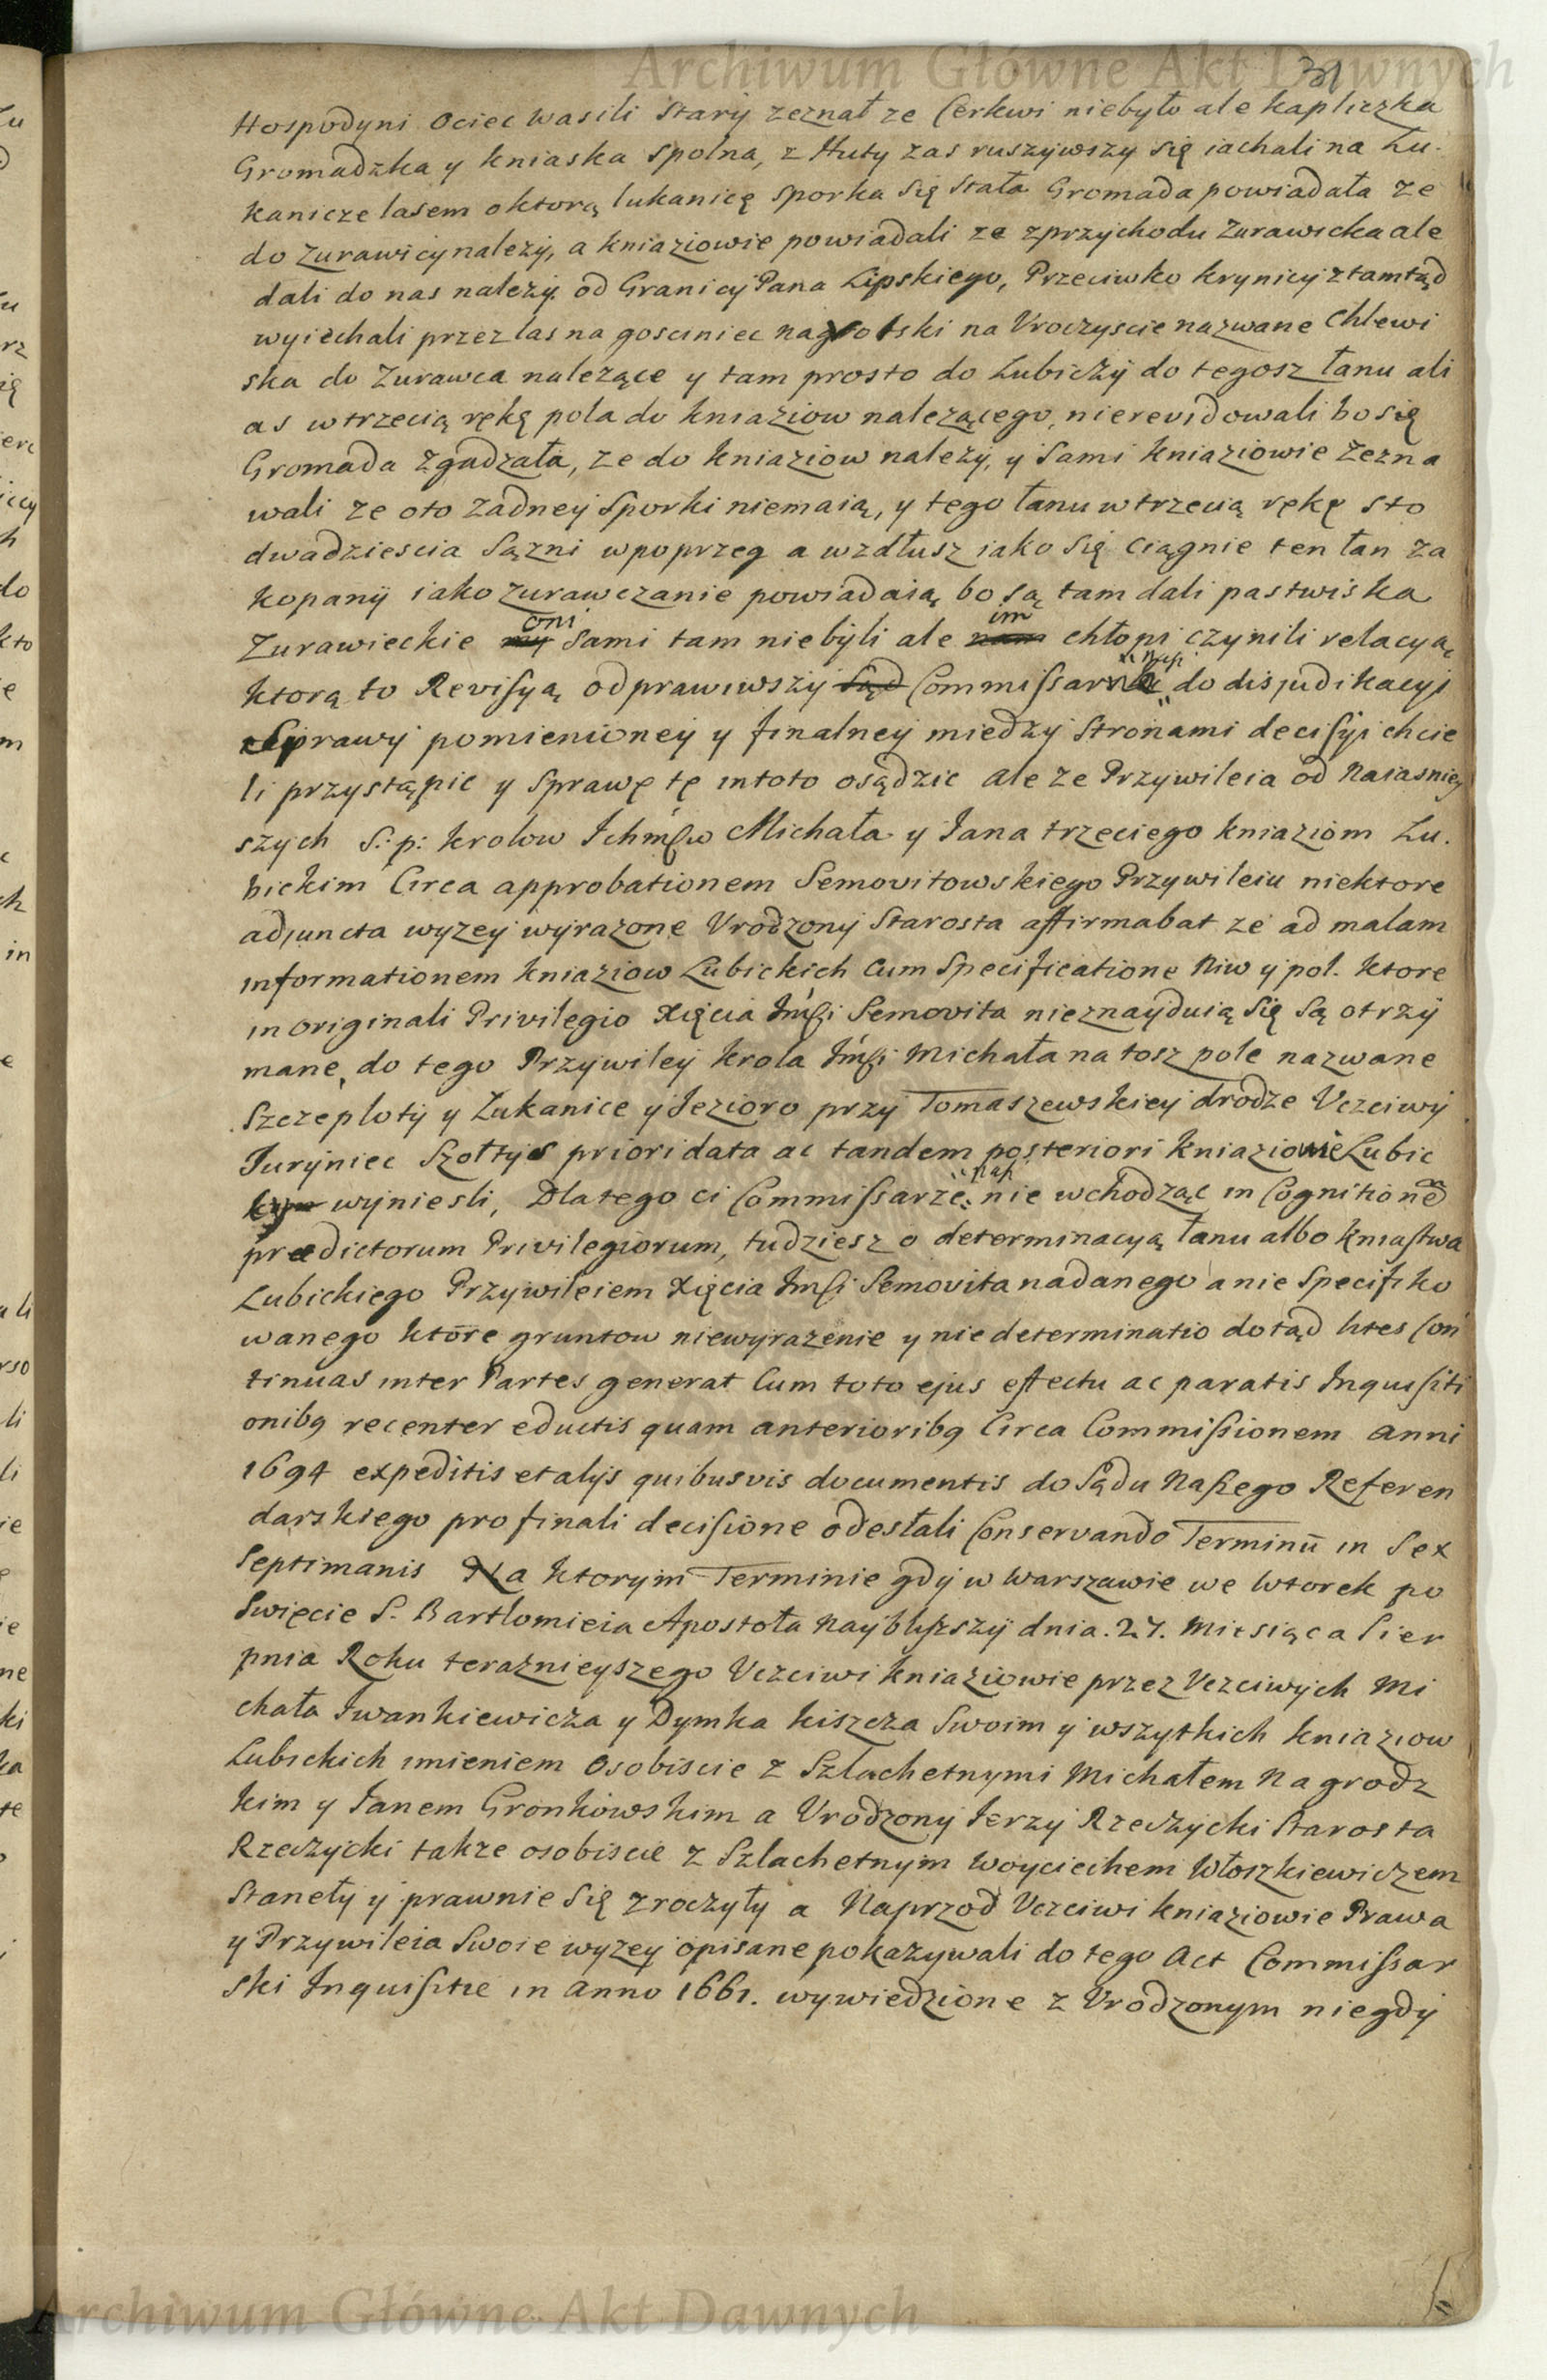 Archiwum Główne Akt Dawnych
31
Hospodyni Ociec Wasili Stary zeznał ze Cerkwi niebyło ale kapliczka
Gromadzka y kniaska spolna, z Huty zas ruszywszy się iachali na Lu-
kanicze lasem oktorą lukanicę sporka się stała Gromada powiadała ze
do Zurawicy nalezy, a kniaziowie powiadali ze zprzychodu Zurawicka ale
dali do nas nalezy. od Granicy Pana Lipskiego, Przeciwko krynicy ztamtąd
wyiechali przez las na gosciniec nagrolski na Vroczyscie nazwane Chlewi
ska do Zurawca nalezące y tam prosto do Lubiczy do tegosz łanu ali
as wtrzecią rękę pola do kniaziow nalezącego, nierevidowali bo się
Gromada zgadzała, ze do kniaziow nalezy, y sami kniaziowie zezna
wali ze oto zadney sporki niemaią, y tego łanu wtrzecią rękę sto
dwadziescia sązni wpoprzeg a wzdłusz iako się ciągnie ten łan za
kopany iako Zurawczanie powiadaią bo są tam dali pastwiska
oni im
Zurawieckie my sami tam niebyli ale nam chłopi czynili relacyą
nasi
ktorą to Revisyą odprawiwszy Sąd Commissarze do disjudikacyi
Sprawy pomienioney y finalney miedzy Stronami decisyi chcie
li przystąpic y Sprawę tę intoto osądzic ale ze Przywileia od Naiasniey
szych S: p: krolow Ichmſw Michała y Jana trzeciego kniaziom Lu-
bickim Circa approbationem Semovitowskiego Przywileiu niektore
adjuncta wyzey wyrazone Vrodzony Starosta affirmabat ze ad malam
informationem kniaziow Lubickich cum specificatione Niw y pol. ktore
in originali Privilegio Xięcia Jmſi Semovita nieznayduią się są otrzy
mane, do tego Przywiley krola Jmſi Michała na tosz pole nazwane
Szczeploty y Lukanice y Jezioro przy Tomaszewskiey drodze Vczciwy
Juryniec Szołtys priori data ac tandem posteriori kniaziowie Lubic
nasi
cy wyniesli, Dlatego ci Commissarze nie wchodząc in Cognitionē
prædictorum Privilegiorum, tudziesz o determinacyą łanu albo kniastwa
Lubickiego Przywileiem Xięcia Jmſi Semovita nadanego a nie specifiko
wanego ktore gruntow niewyrazenie y nie determinatio dotąd lites Con
tinuas inter Partes generat Cum toto ejus effectu ac paratis Inquisiti
onibꝰ recenter eductis quam anterioribꝰ Circa Commissionem anni
1694 expeditis et alys quibusvis documentis do Sądu Naszego Referen
darskiego pro finali decisione odesłali Conservando Terminū in Sex
Septimanis Na ktorym Terminie gdy w Warszawie we Wtorek po
Swięcie S. Bartlomieia Apostoła Nayblizszy dnia. 27. Miesiąca Sier
pnia Roku teraznieyszego Vczciwi kniaziowie przez Vczciwych Mi
chała Jwankiewicza y Dymka kiszcza Swoim y wszytkich kniaziow
Lubickich imieniem Osobiscie z Szlachetnymi Michałem Nagrodz
kim y Janem Gronkowskim a Vrodzony Jerzy Rzeczycki Starosta
Rzeczycki takze osobiscie z Szlachetnym Woyciechem Włoszkiewiczem
Stanęły y prawnie się zroczyły a Naprzod Vczciwi kniaziowie Prawa
y Przywileia Swoie wyzey opisane pokazywali do tego Act Commissar
ski Inquisitie in anno 1661. wywiedzione z Vrodzonym niegdy
Archiwum Główne Akt Dawnych